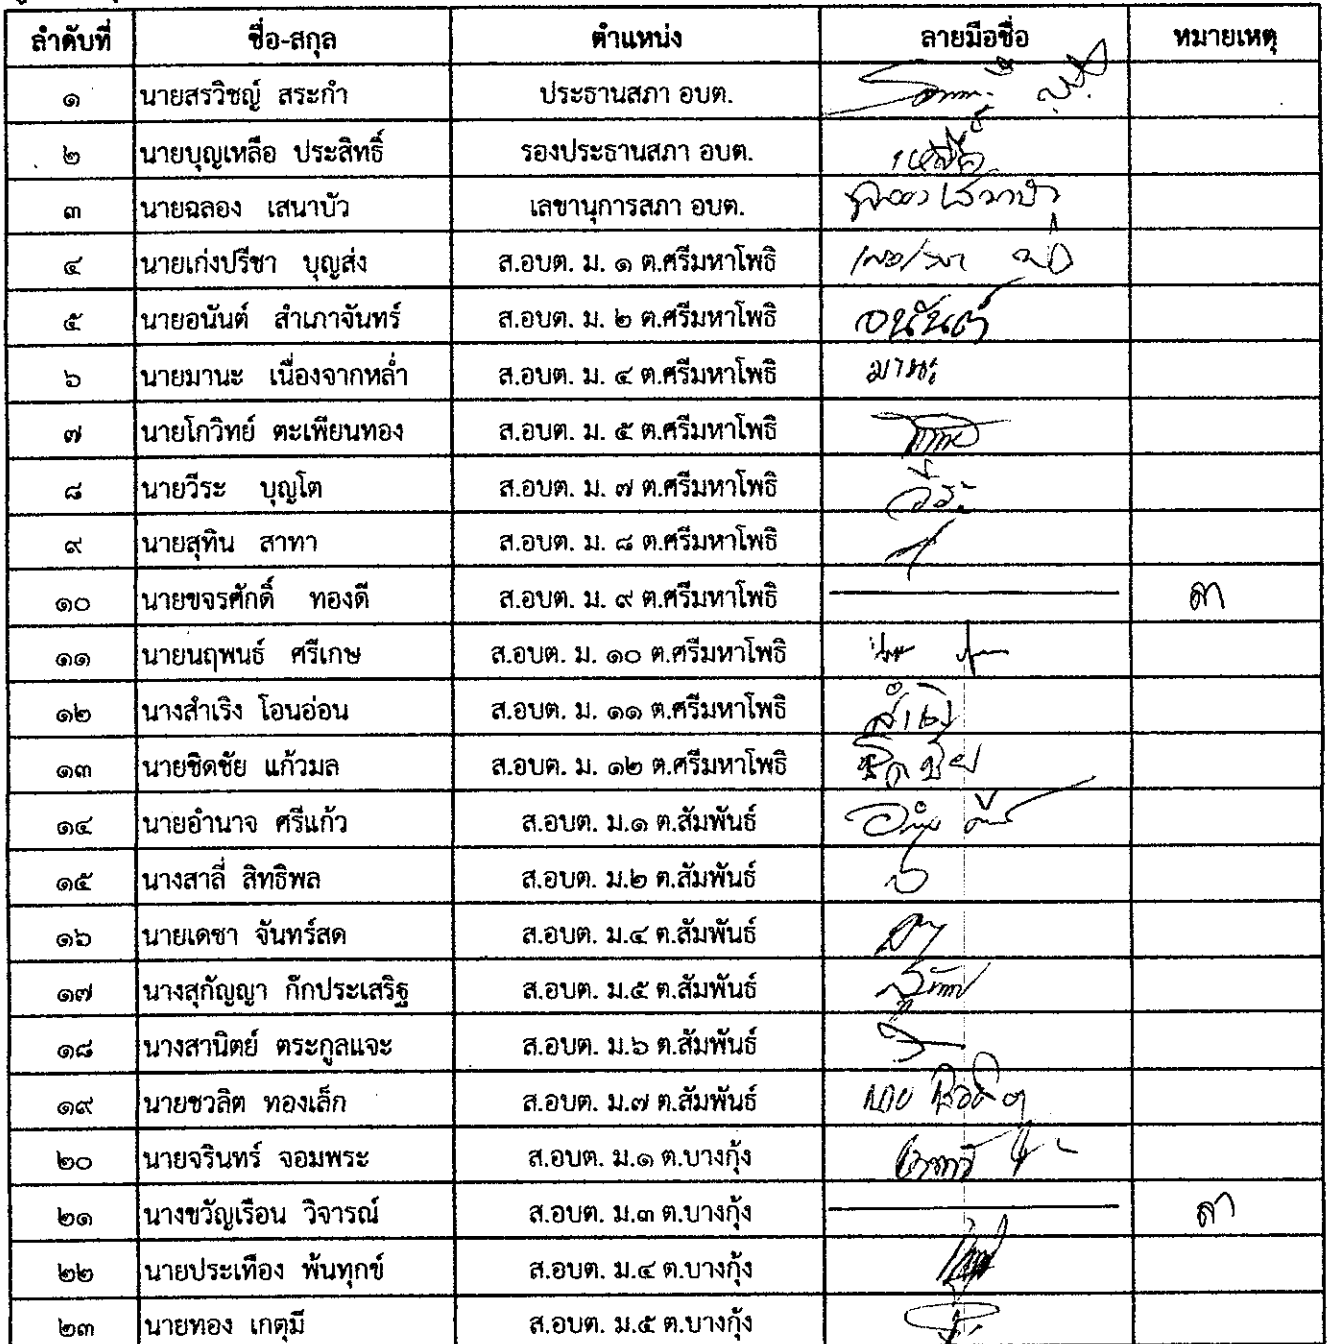 ลำดับที่ ชื่อ-สกุล ตำแหน่ง ลายมือชื่อ หมายเหตุ
๑ นายสรวิชญ์ สระกำ ประธานสภา อบต.
๒ นายบุญเหลือ ประสิทธิ์ รองประธานสภา อบต. เหลือ
๓ นายฉลอง เสนาบัว เลขานุการสภา อบต. ฉลอง เสนาบัว
๔ นายเก่งปรีชา บุญส่ง ส.อบต. ม. ๑ ต.ศรีมหาโพธิ
๕ นายอนันต์ สำเภาจันทร์ ส.อบต. ม. ๒ ต.ศรีมหาโพธิ อนันต์
๖ นายมานะ เนื่องจากหล่ำ ส.อบต. ม. ๔ ต.ศรีมหาโพธิ มานะ
๗ นายโกวิทย์ ตะเพียนทอง ส.อบต. ม. ๕ ต.ศรีมหาโพธิ
๘ นายวีระ บุญโต ส.อบต. ม. ๗ ต.ศรีมหาโพธิ วีระ
๙ นายสุทิน สาทา ส.อบต. ม. ๘ ต.ศรีมหาโพธิ
๑๐ นายขจรศักดิ์ ทองดี ส.อบต. ม. ๙ ต.ศรีมหาโพธิ ลา
๑๑ นายนฤพนธ์ ศรีเกษ ส.อบต. ม. ๑๐ ต.ศรีมหาโพธิ
๑๒ นางสำเริง โอนอ่อน ส.อบต. ม. ๑๑ ต.ศรีมหาโพธิ
๑๓ นายชิดชัย แก้วมล ส.อบต. ม. ๑๒ ต.ศรีมหาโพธิ ชิดชัย
๑๔ นายอำนาจ ศรีแก้ว ส.อบต. ม.๑ ต.สัมพันธ์
๑๕ นางสาลี่ สิทธิพล ส.อบต. ม.๒ ต.สัมพันธ์
๑๖ นายเดชา จันทร์สด ส.อบต. ม.๔ ต.สัมพันธ์
๑๗ นางสุกัญญา ก๊กประเสริฐ ส.อบต. ม.๕ ต.สัมพันธ์
๑๘ นางสานิตย์ ตระกูลแจะ ส.อบต. ม.๖ ต.สัมพันธ์
๑๙ นายชวลิต ทองเล็ก ส.อบต. ม.๗ ต.สัมพันธ์ นาย ชวลิต
๒๐ นายจรินทร์ จอมพระ ส.อบต. ม.๑ ต.บางกุ้ง
๒๑ นางขวัญเรือน วิจารณ์ ส.อบต. ม.๓ ต.บางกุ้ง ลา
๒๒ นายประเทือง พ้นทุกข์ ส.อบต. ม.๔ ต.บางกุ้ง
๒๓ นายทอง เกตุมี ส.อบต. ม.๕ ต.บางกุ้ง